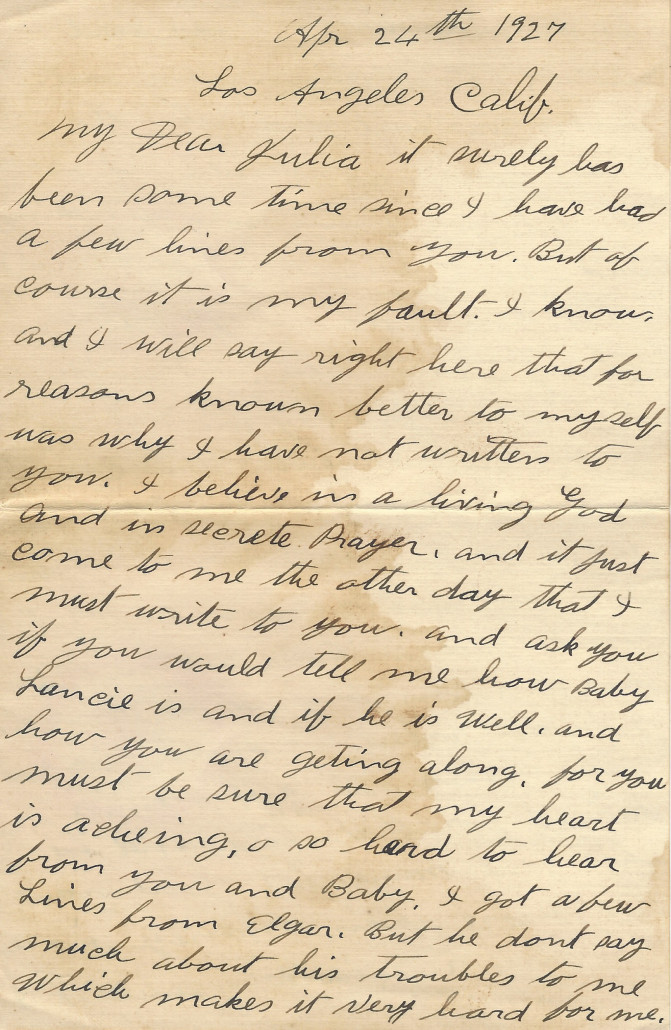 Apr 24th 1927
Los Angeles Calif.
My Dear Julia it surely has
been some time since I have had
a few lines from you. But of
course it is my fault. I know.
and I will say right here that for
reasons known better to myself
was why I have not writters to
you. I believe in a living God
and in secrete Prayer. and it just
come to me the other day that I
must write to you. and ask you
if you would tell me how Baby
Lancie is and if he is well. and
how you are geting along. for you
must be sure that my heart
is acheing, o so hard to hear
from you and Baby. I got a few
Lines from Elgar. But he dont say
much about his troubles to me
which makes it very hard for me.